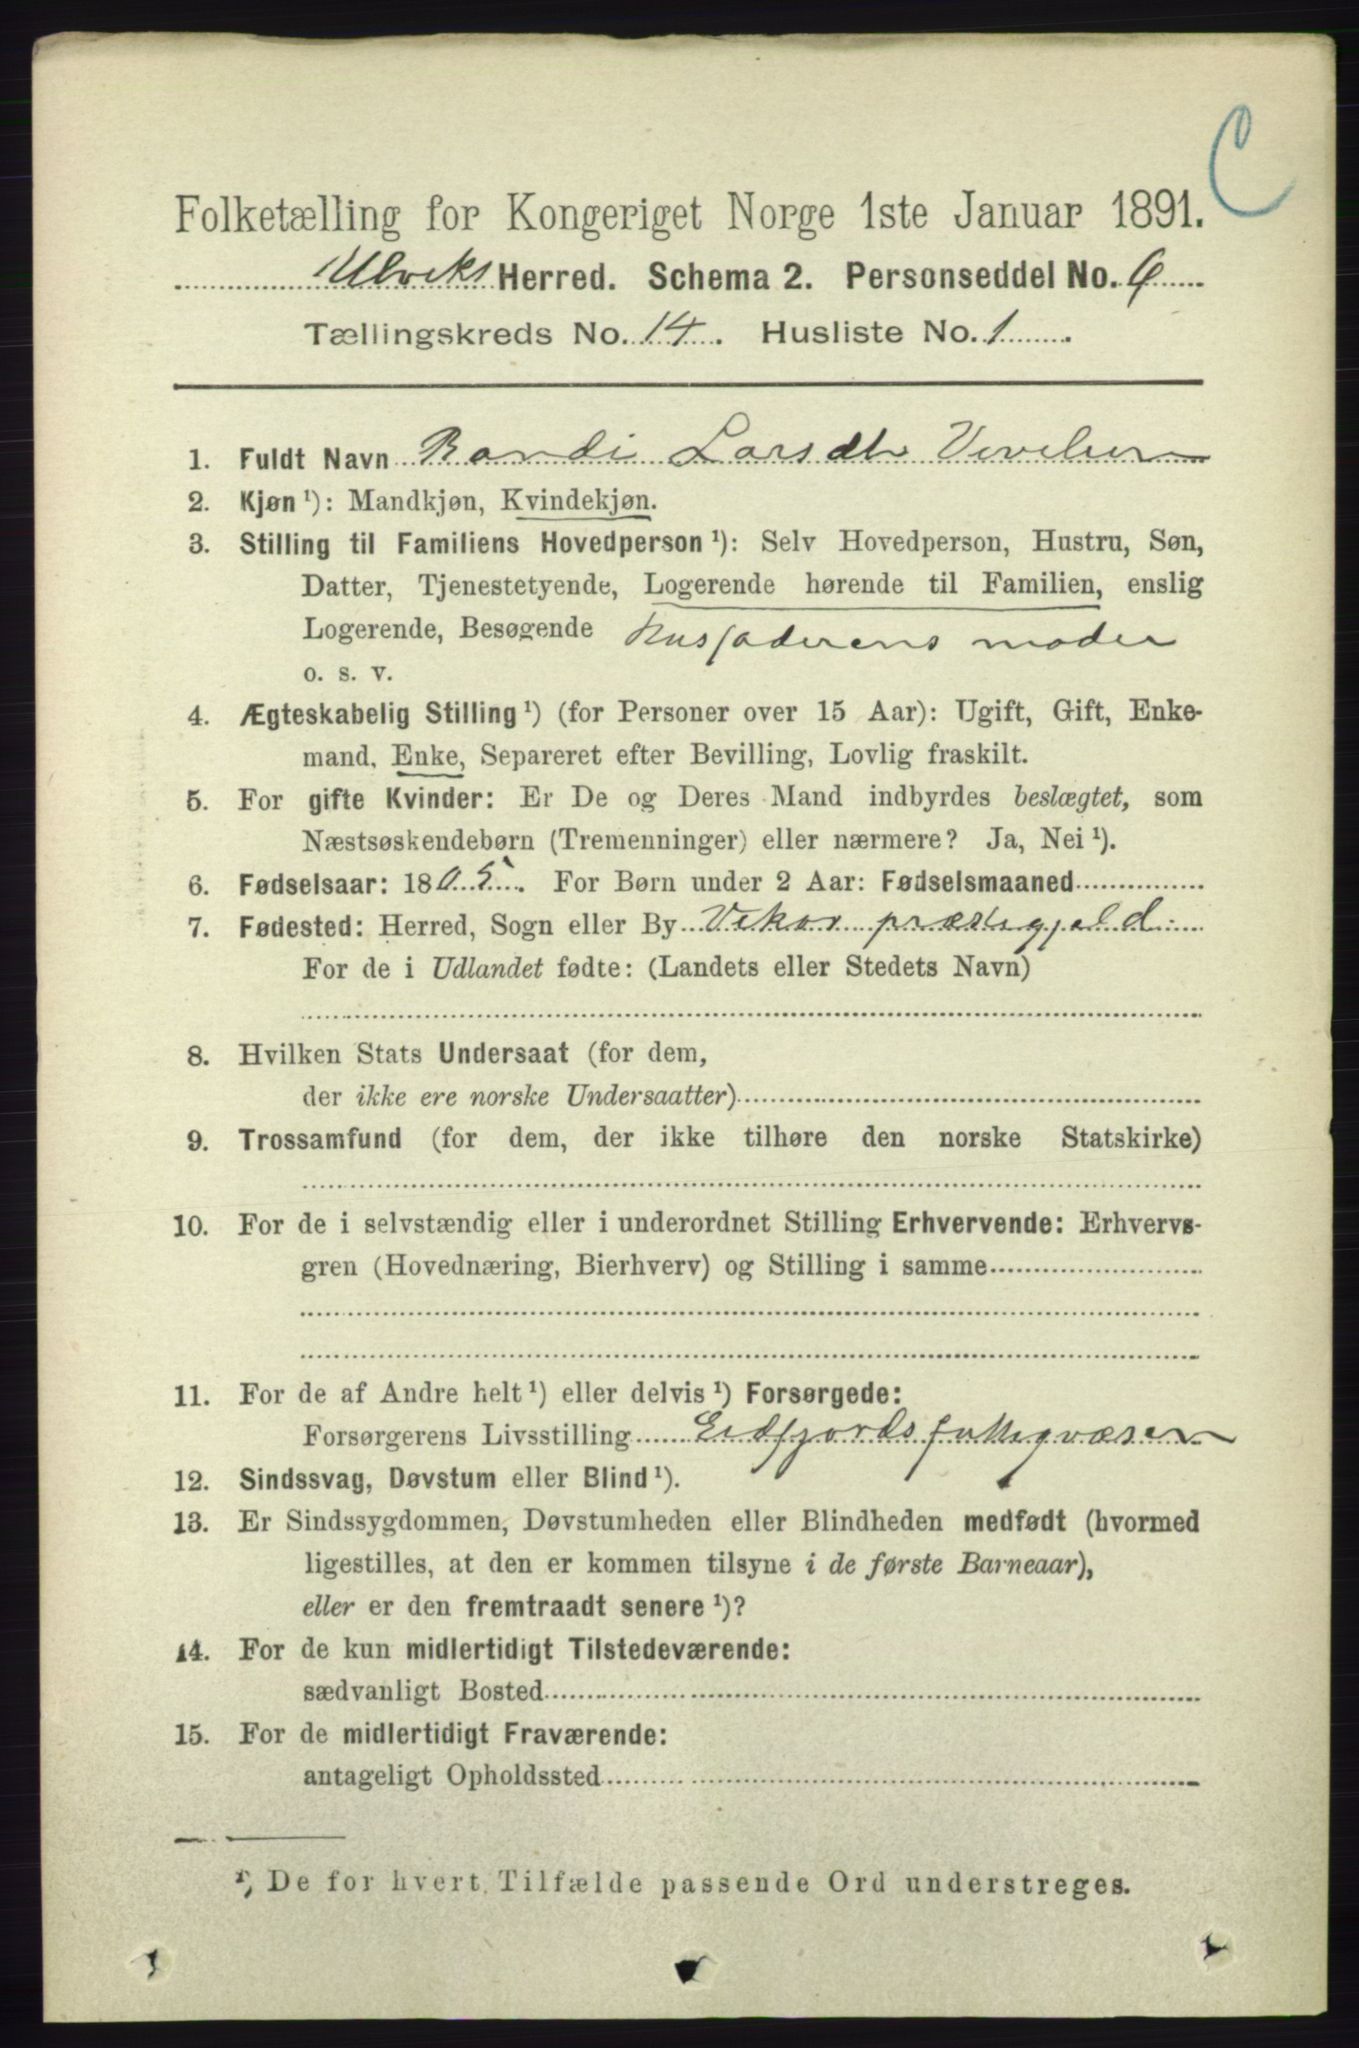 C
Folketælling for Kongeriget Norge 1ste Januar 1891.
Ulviks Herred. Schema 2. Personseddel No. 6
Tællingskreds No. 14. Husliste No. 1.
1. Fuldt Navn Randi Larsdtr
2. Kjøn ¹): Mandkjøn, Kvindekjøn.
3. Stilling til Familiens Hovedperson ¹): Selv Hovedperson, Hustru, Søn,
Datter, Tjenestetyende, Logerende hørende til Familien, enslig
Logerende, Besøgende Husfaderens moder
o. s. v.
4. Ægteskabelig Stilling ¹) (for Personer over 15 Aar): Ugift, Gift, Enke-
mand, Enke, Separeret efter Bevilling, Lovlig fraskilt.
5. For gifte Kvinder: Er De og Deres Mand indbyrdes beslægtet, som
Næstsøskendebørn (Tremenninger) eller nærmere? Ja, Nei ¹).
6. Fødselsaar: 1805. For Børn under 2 Aar: Fødselsmaaned
7. Fødested: Herred, Sogn eller By Vikør præstegjeld
For de i Udlandet fødte: (Landets eller Stedets Navn)
8. Hvilken Stats Undersaat (for dem,
der ikke ere norske Undersaatter)
9. Trossamfund (for dem, der ikke tilhøre den norske Statskirke)
10. For de i selvstændig eller i underordnet Stilling Erhvervende: Erhvervs-
gren (Hovednæring, Bierhverv) og Stilling i samme
11. For de af Andre helt ¹) eller delvis ¹) Forsørgede:
Forsørgerens Livsstilling Eidfjords fattigvæsen
12. Sindssvag, Døvstum eller Blind ¹).
13. Er Sindssygdommen, Døvstumheden eller Blindheden medfødt (hvormed
ligestilles, at den er kommen tilsyne i de første Barneaar),
eller er den fremtraadt senere ¹)?
14. For de kun midlertidigt Tilstedeværende:
sædvanligt Bosted
15. For de midlertidigt Fraværende:
antageligt Opholdssted
¹) De for hvert Tilfælde passende Ord understreges.